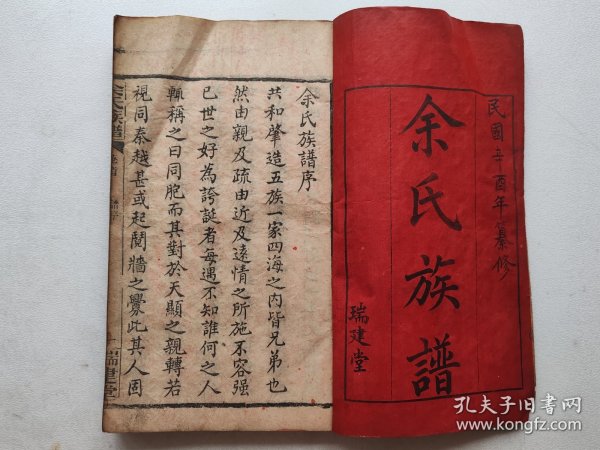 民國辛酉年纂修
余氏族譜
瑞建堂
余氏族譜序
共和肇造五族一家四海之内皆兄弟也
然由親及疏由近及遠情之所施不容强
已世之好為誇誕者每遇不知誰何之人
輒稱之曰同胞而其對於天顯之親轉若
視同秦越甚或起鬩牆之釁此其人固
余氏族譜
瑞建堂
孔夫子旧书网
www.kongfz.com